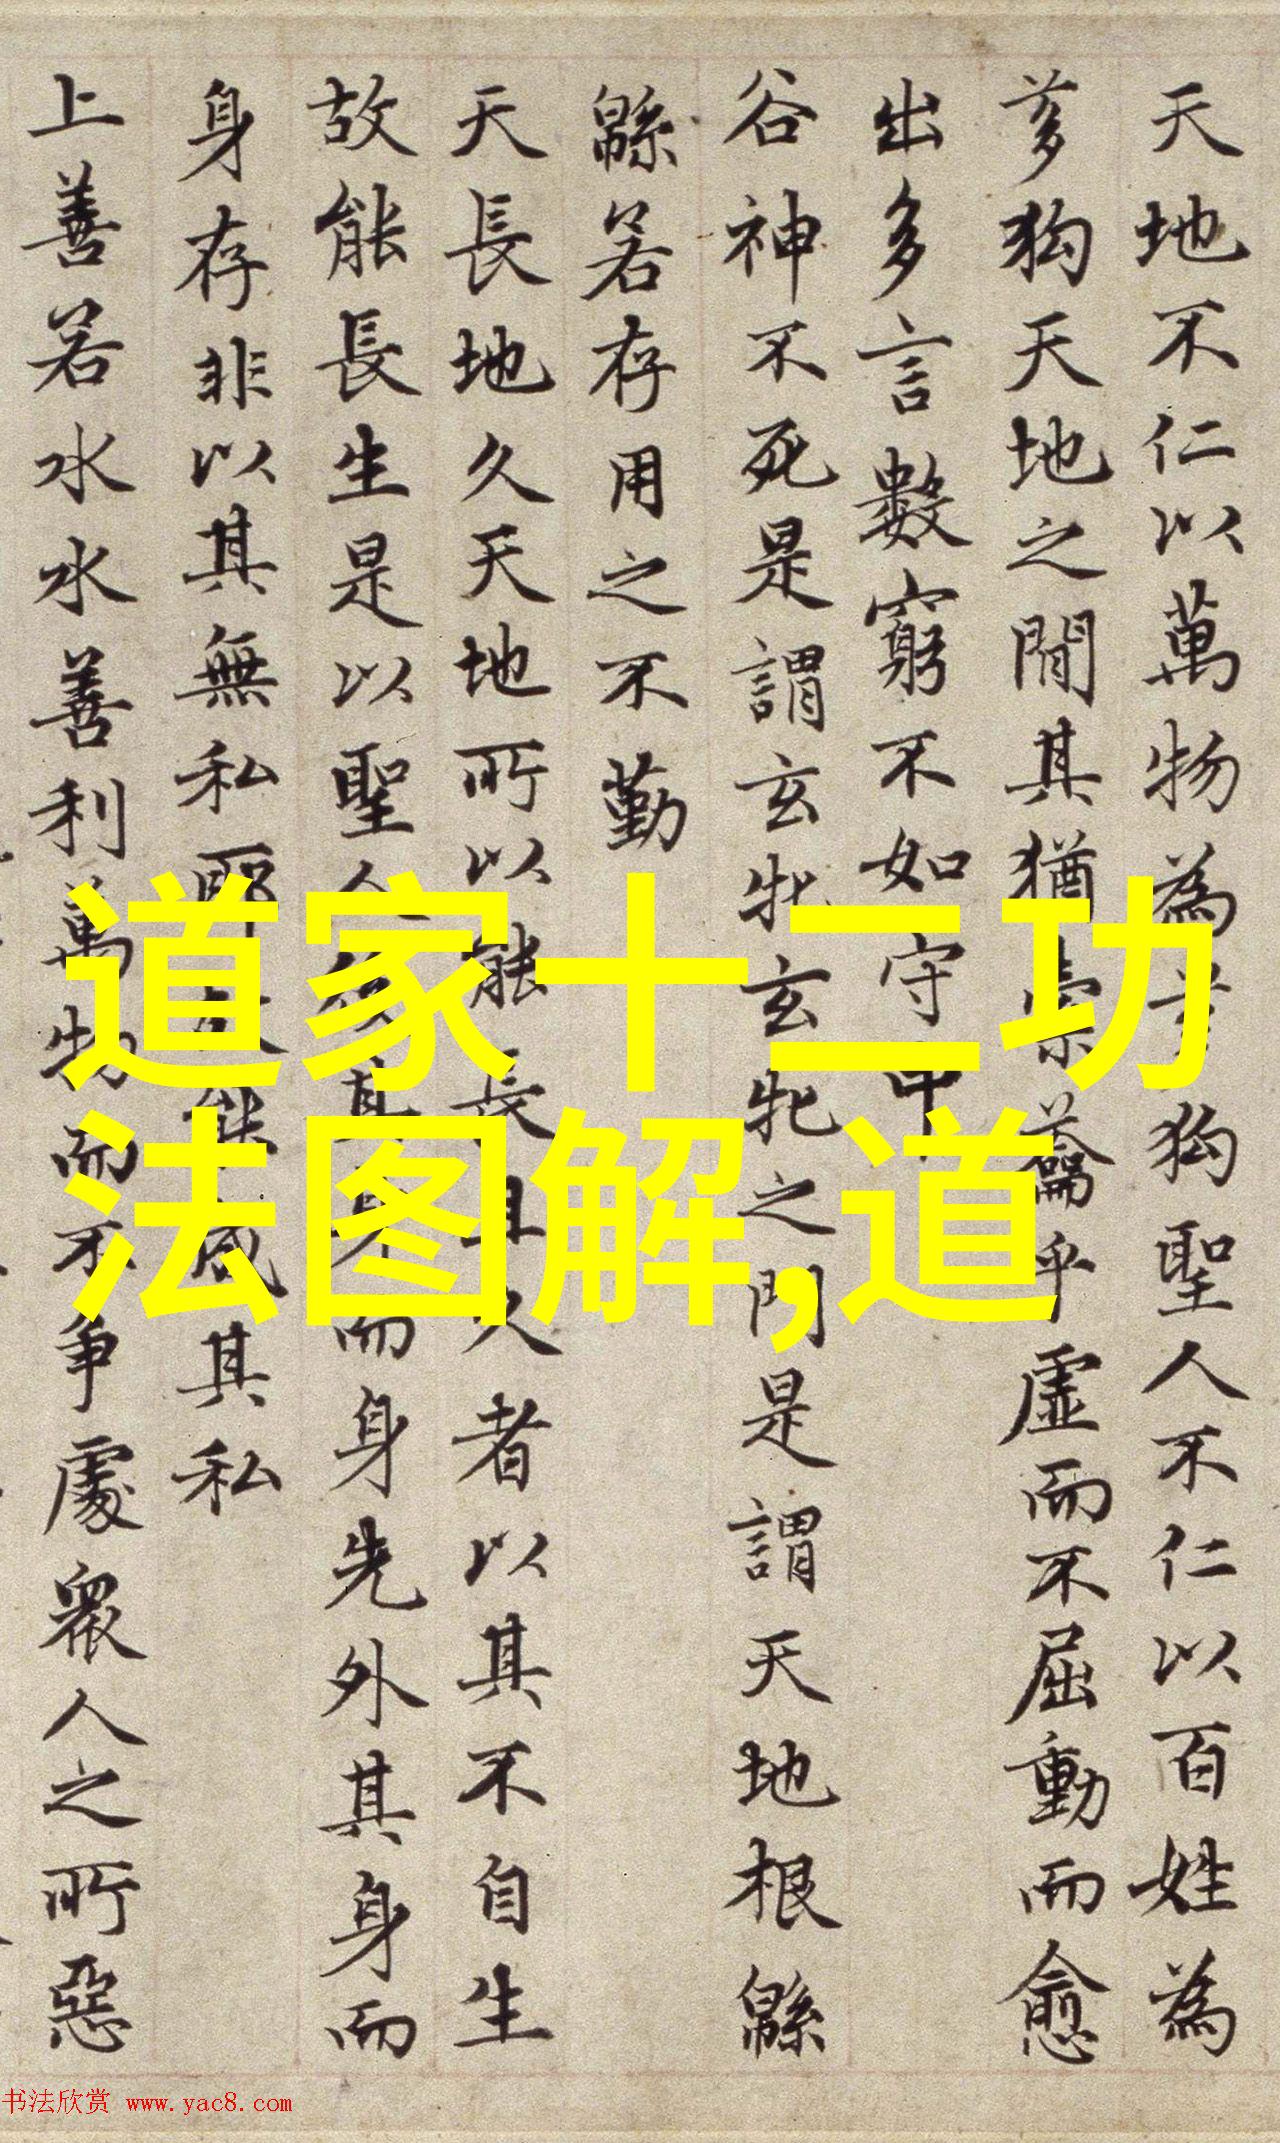 天地不仁以萬物為芻狗聖人不仁以百姓為
芻狗天地之閒其猶橐籥乎虛而不屈動而愈
出多言數窮不如守中
谷神不死是謂玄牝玄牝之門是謂天地根緜
緜若存用之不勤
天長地久天地所以能長且久者以其不自生
故能長生是以聖人後其身而身先外其身而
身存非以其無私耶故能成其私
上善若水水善利萬物而不爭處眾人之所惡
道家十二功
法图解,道
书法欣赏 www.yac8.com